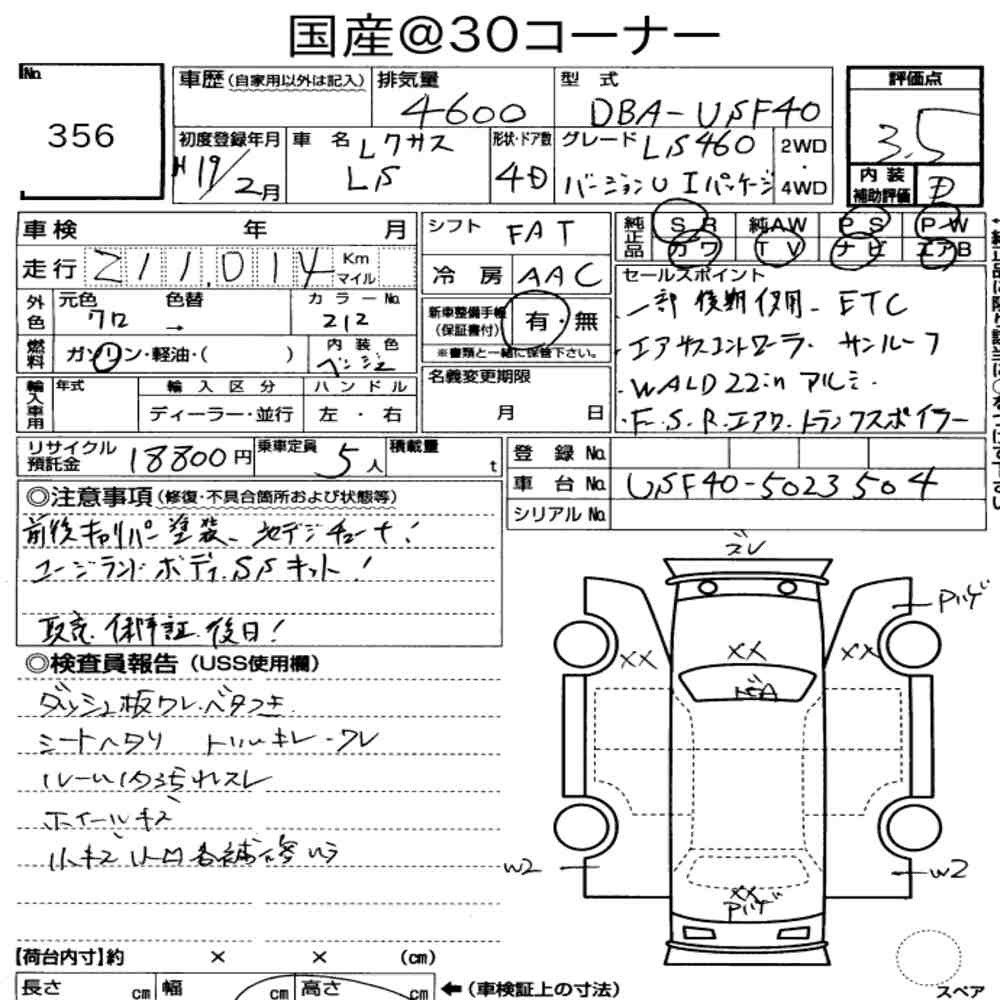 国産@30コーナー
No.
356
車歴(自家用以外は記入)
排気量
4600
型 式
DBA-USF40
初度登録年月
H19/2月
車 名
レクサス
LS
形状・ドア数
4D
グレード LS460
バージョンU Iパッケージ
2WD
・
4WD
評価点
3.5
内装
補助評価
D
車検 年 月
走行 211,014 Km
マイル
外色
元色 色替
クロ →
カラーNo.
212
燃料
ガソリン・軽油・( )
内装色
ベージュ
輸入車用
年式
輸入区分
ディーラー・並行
ハンドル
左・右
シフト FAT
冷房 AAC
新車整備手帳
(保証書付)
有・無
※書類と一緒に保管下さい。
名義変更期限
月 日
純正品
SR 純AW PS PW
カワ TV ナビ エアB
セールスポイント
一部後期使用 ETC
・エアサスコントローラ サンルーフ
・WALD 22in アルミ・
・F.S.R.エアロ トランクスポイラー
リサイクル
預託金
18800円
乗車定員
5人
積載量
t
登録No.
車台No. USF40-5023504
シリアルNo.
◎注意事項(修復・不具合箇所および状態等)
前後キャリパー塗装、地デジチューナ!
ユージランド ボディ SSキット!
取売 保障証 後日!
◎検査員報告(USS使用欄)
ダッシュ板ワレ・ベタつき
シートヘタリ トリムキレ・ワレ
ルーム内汚れスレ
ホイールキズ
小キズ
各補修
ズレ
Pハゲ
XX
XX
XX
W2
XX
Pハゲ
W2
【荷台内寸】約 × × (cm)
長さ cm 幅 cm 高さ cm
←(車検証上の寸法)
スペア